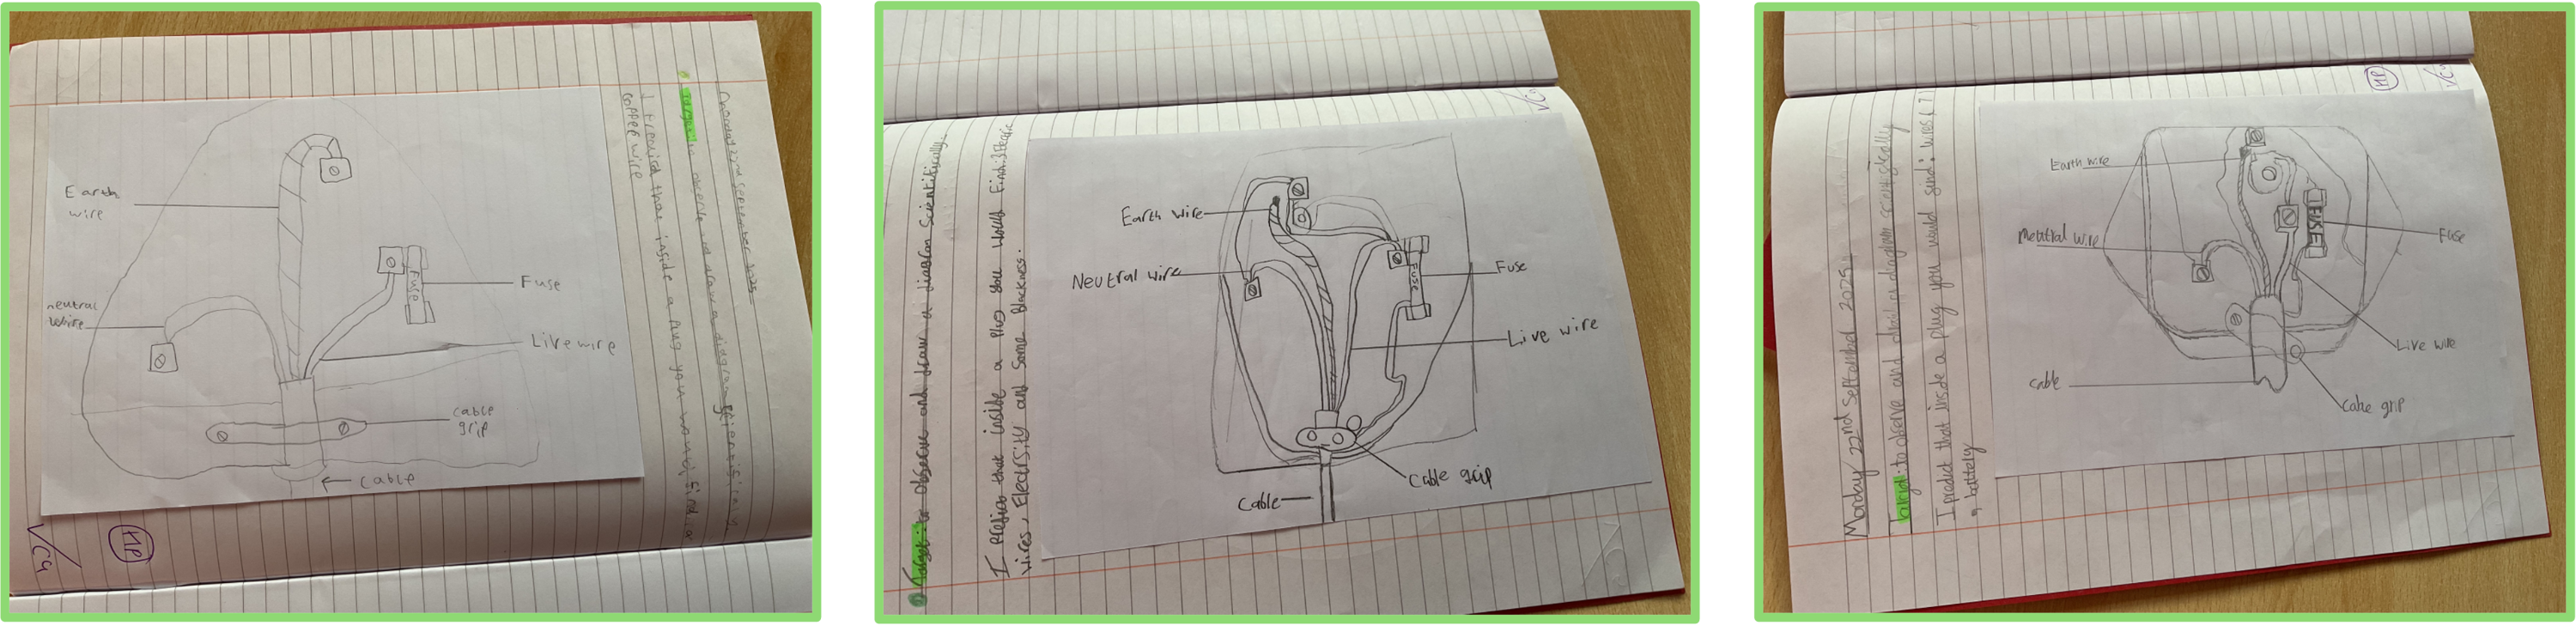 Monday 22nd september 2025
Target: to observe and draw a diagram scientifically
I predict that inside a plug you would find: a
copper wire
Earth
wire
neutral
wire
Fuse
Fuse
Live wire
cable
grip
← cable
HP
Target: to observe and draw a diagram scientifically.
I predict that inside a Plug you would find: Electric
wires, Electrsity and some blackness.
Earth wire
Neutral wire
Fuse
FUSE
Live wire
Cable grip
Cable
Monday 22nd September 2025
Target: to observe and draw a diagram scientifically
I predict that inside a plug you would find: wires
a battety
Earth wire
Neutral wire
FUSE
Fuse
Live wire
cable
Cable grip
HP